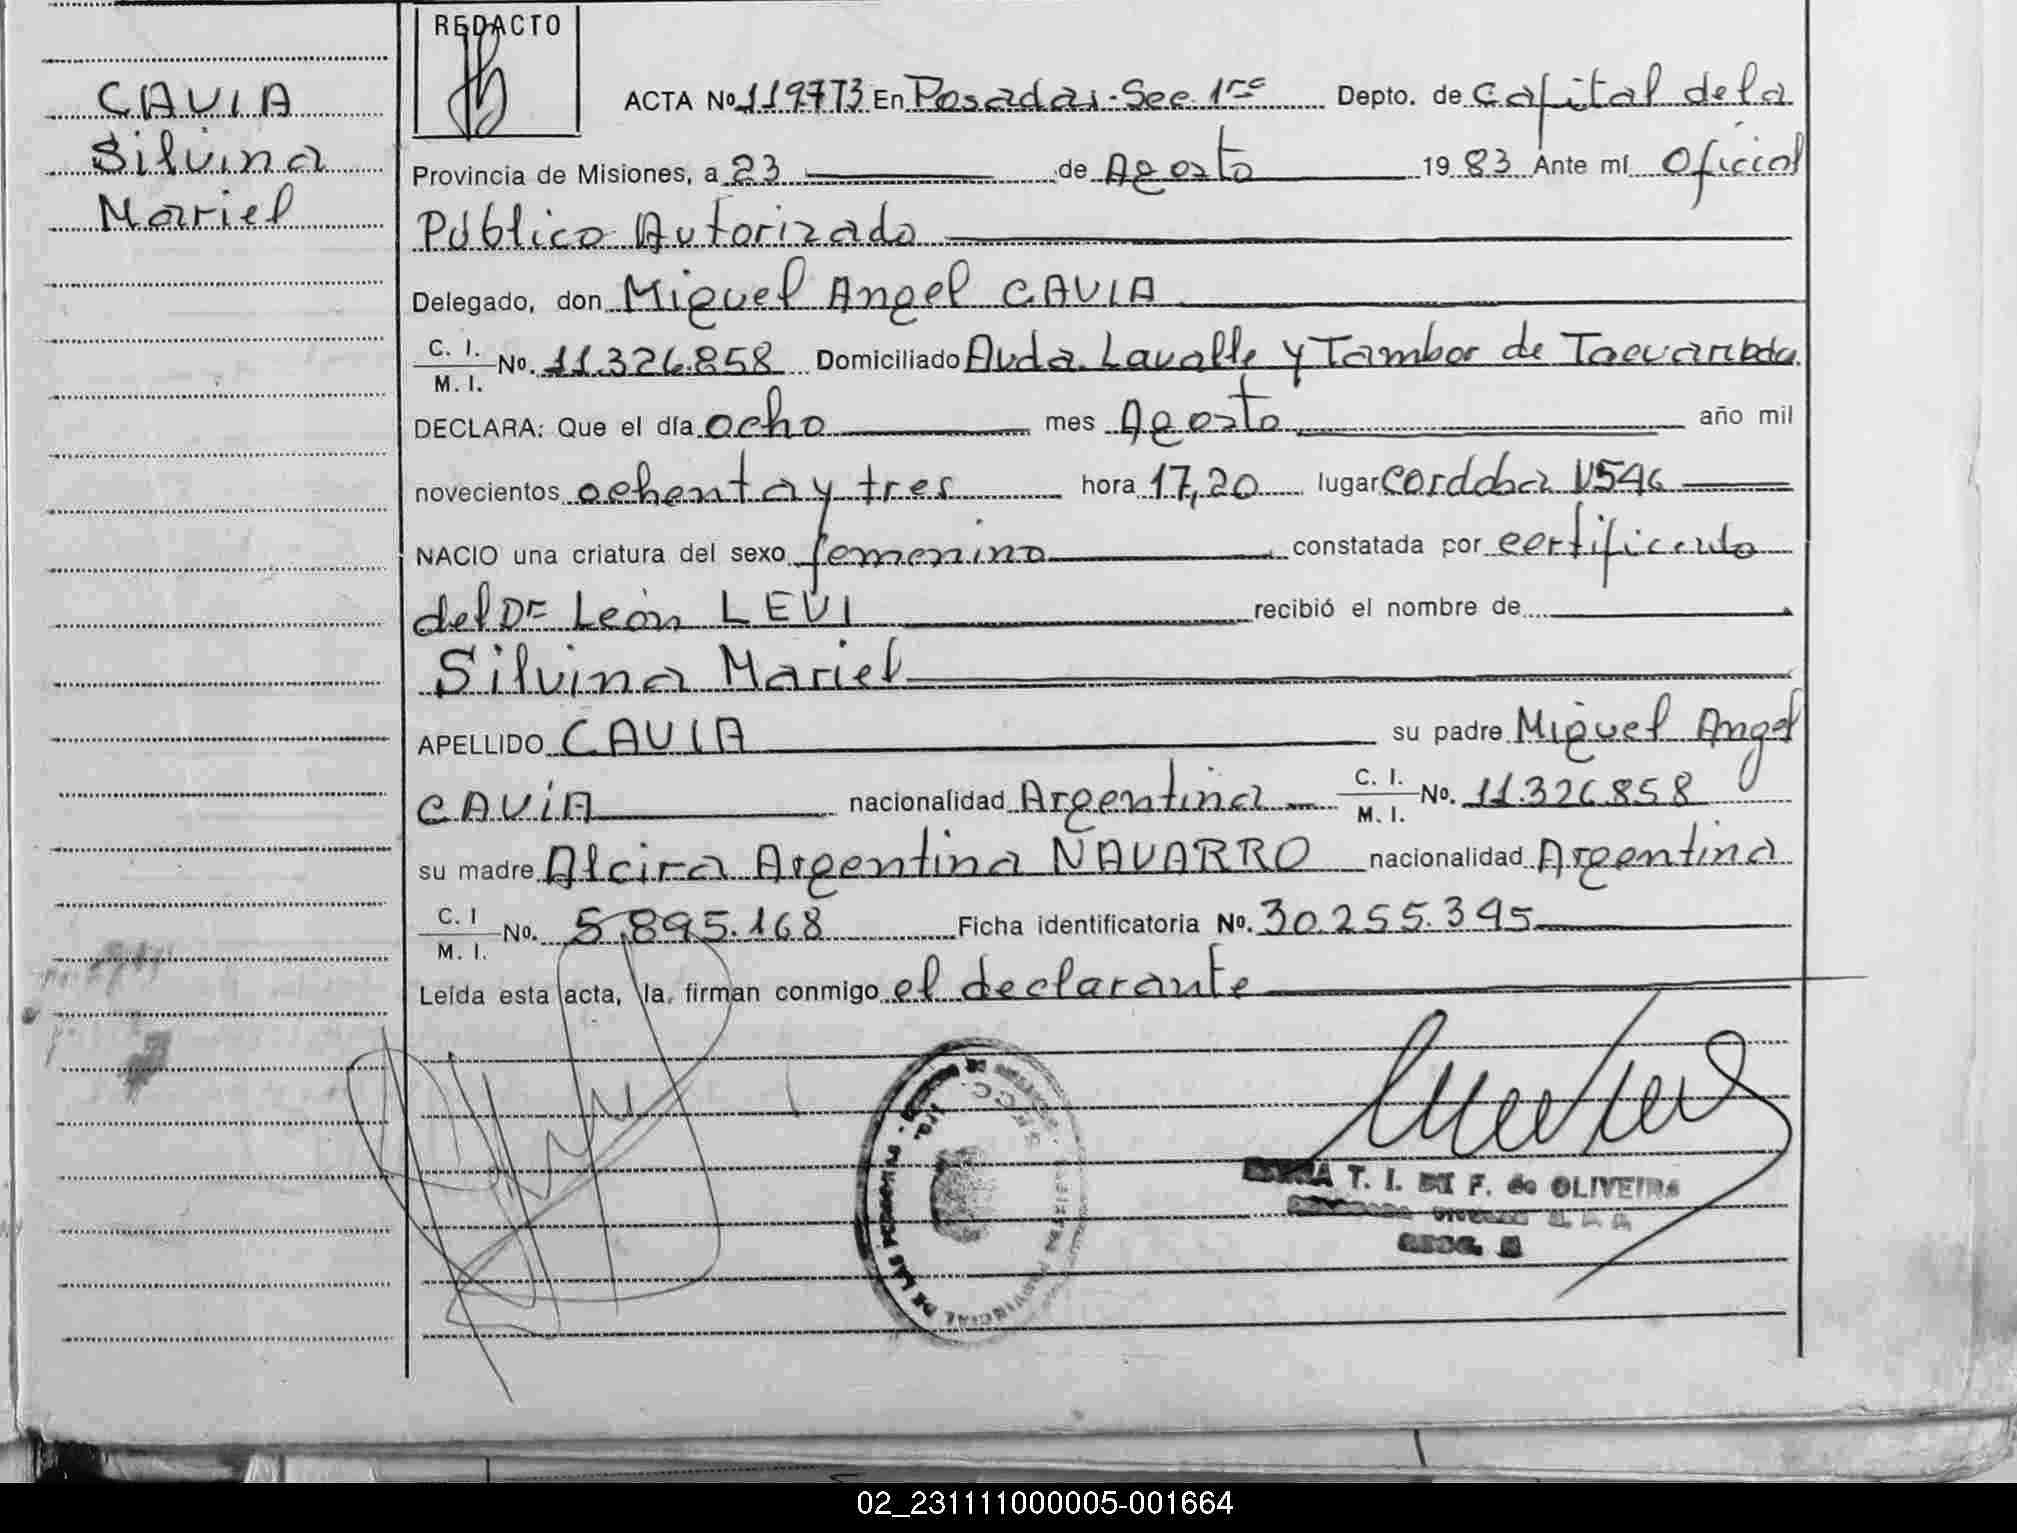 REDACTO
CAVIA
Silvina
Mariel
ACTA No 119773 En Posadas-Sec. 1ra Depto. de Capital de la
Provincia de Misiones, a 23 de Agosto 1983 Ante mí Oficial
Público Autorizado
Delegado, don Miguel Angel CAVIA
C. I. / M. I. No. 11.326.858 Domiciliado Avda. Lavalle y Tambor de
DECLARA: Que el día ocho mes Agosto año mil
novecientos ochenta y tres hora 17,20 lugar Cordoba
NACIO una criatura del sexo femenino constatada por certificado
del Dr León LEVI recibió el nombre de
Silvina Mariel
APELLIDO CAVIA su padre Miguel Angel
CAVIA nacionalidad Argentina C. I. / M. I. No. 11.326.858
su madre Alcira Argentina NAVARRO nacionalidad Argentina
C. I / M. I. No. 5.895.168 Ficha identificatoria No. 30.255.395
Leída esta acta, la firman conmigo el declarante
T. I. F. de OLIVEIRA
PROVINCIAL DE LAS PERSONAS
02_231111000005-001664